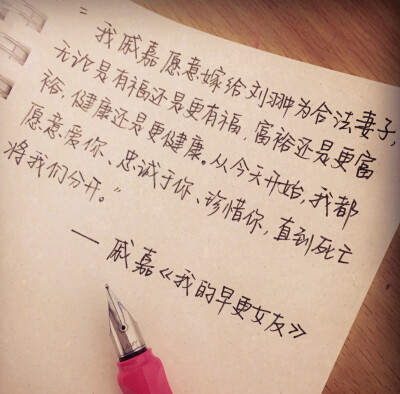 "我戚嘉愿意嫁给刘翀为合法妻子,
无论是有福还是更有福,富裕还是更富
裕,健康还是更健康。从今天开始,我都
愿意爱你、忠诚于你、珍惜你,直到死亡
将我们分开。"
——戚嘉《我的早更女友》